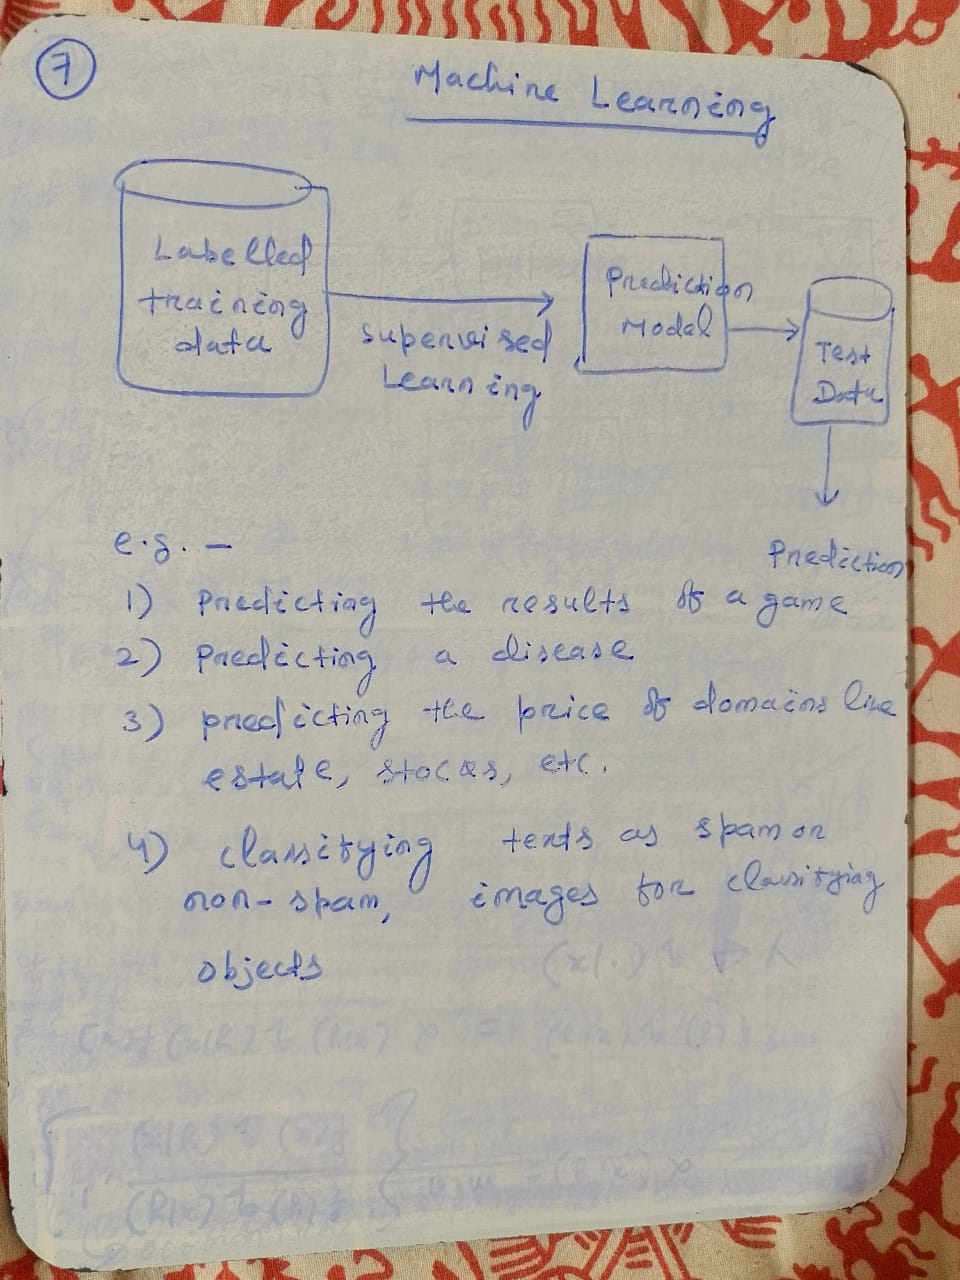 7
Machine Learning
Labelled
training
data
supervised
Learning
Prediction
Model
Test
Data
Prediction
e.g. -
1) Predicting the results of a game
2) Predicting a disease
3) predicting the price of domains like
estate, stocks, etc.
4) classifying texts as spam or
non-spam, images for classifying
objects